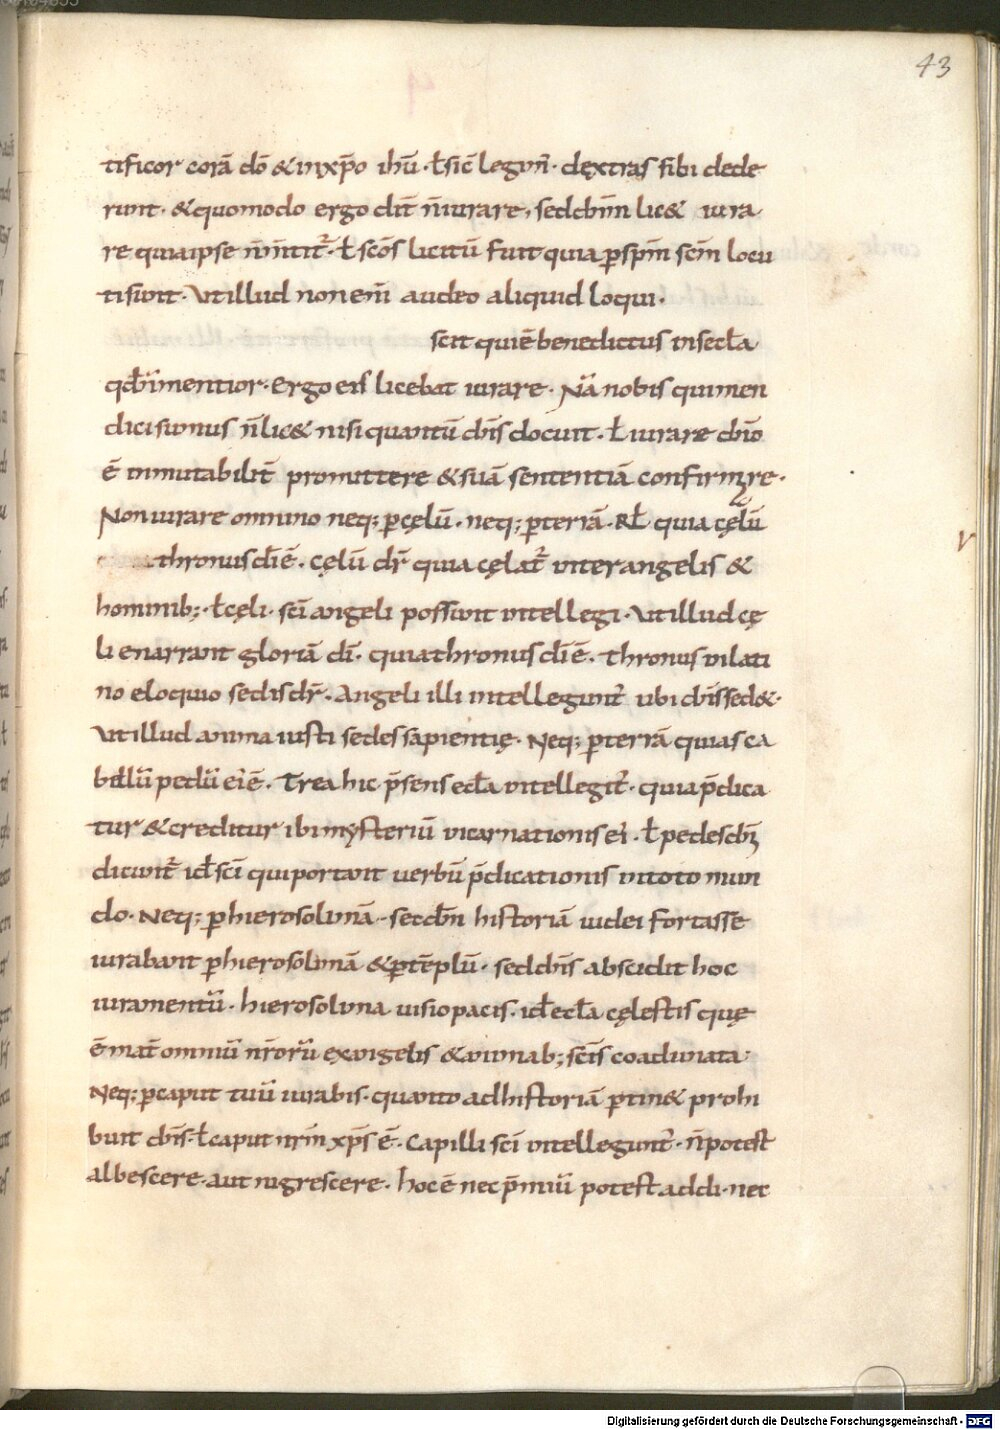 43
tificor corā dō & inxp̄o ihū · ł sic̄ legun̄ · dęxtras sibi dede
runt · & quomodo ergo dix̄ n̄ iurare, sed dn̄m lic& iura
re quia ipse n̄ mentit᷒ · ł sc̄os licitū fuit quia ꝑ sp̄m sc̄m locu
ti sunt · Ut illud non eni᷒ audeo aliquid loqui ·
scit qui ē benedictus in secła
qđ n̄ mentior · Ergo eis licebat iurare · Nā nobis qui men
daci sumus n̄ lic& nisi quantū dn̄s docuit · ł iurare dn̄o
ē inmutabilit̄ promittere & suā sententiā confirmare ·
Non iurare omnino neq; ꝑ cęlū · neq; ꝑ terrā · Rł quia cęlū
thronus dī ē · Cęlū dr̄ quia cęlat᷒ inter angelis &
hominib; · ł cęli · sc̄i angeli possunt intellegi · Ut illud cę
li enarrant gloriā dī · quia thronus dī ē · Thronus in lati
no eloquio sedis dr̄ · Angeli illi intellegunt᷒ ubi dn̄s sed& ·
Ut illud anima iusti sedes sapientię · Neq; ꝑ terrā quia sca
bellū pedū ei᷒ ē · Trea hic p̄sens ecła intellegit᷒ · quia p̄dica
tur & creditur ibi mysteriū incarnationis ei᷒ · ł pedes dn̄i
dicunt᷒ id̄ sc̄i qui portant uerbū p̄dicationis in toto mun
do · Neq; ꝑ hierosolimā · secdn̄ historiā iudei fortasse
iurabant ꝑ hierosolimā & ꝑ tēplū · sed dn̄s abscidit hoc
iuramentū · hierosolima uisio pacis · id̄ ecła cęlestis quę
ē mat̄ omniū nr̄orū ex angelis & animab; sc̄is coadunata ·
Neq; ꝑ caput tuū iurabis · quanto ad historiā ꝑtin& prohi
buit dn̄s · ł caput nr̄m xp̄s ē · Capilli sc̄i intellegunt᷒ · n̄ potest
albescere · aut nigrescere · hoc ē nec p̄miū potest addi · nec
Digitalisierung gefördert durch die Deutsche Forschungsgemeinschaft - DFG